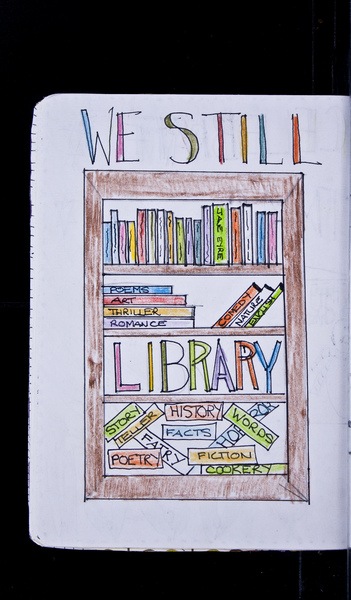 WE STILL
JANE EIRE
POEMS
ART
THRILLER
ROMANCE
COMEDY
NATURE
ENGLISH
LIBRARY
STORY
TELLER
HISTORY
WORDS
FACTS
FAIRY
POETRY
FICTION
COOKERY